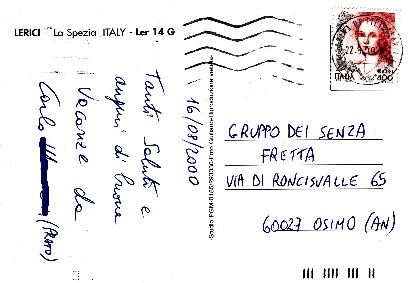 LERICI La Spezia ITALY - Ler 14 G
Tanti Saluti e
auguri di buone
Vacanze da
Carlo
(PRATO)
16/08/2000
ITALIA
GRUPPO DEI SENZA
FRETTA
VIA DI RONCISVALLE 65
60027 OSIMO (AN)